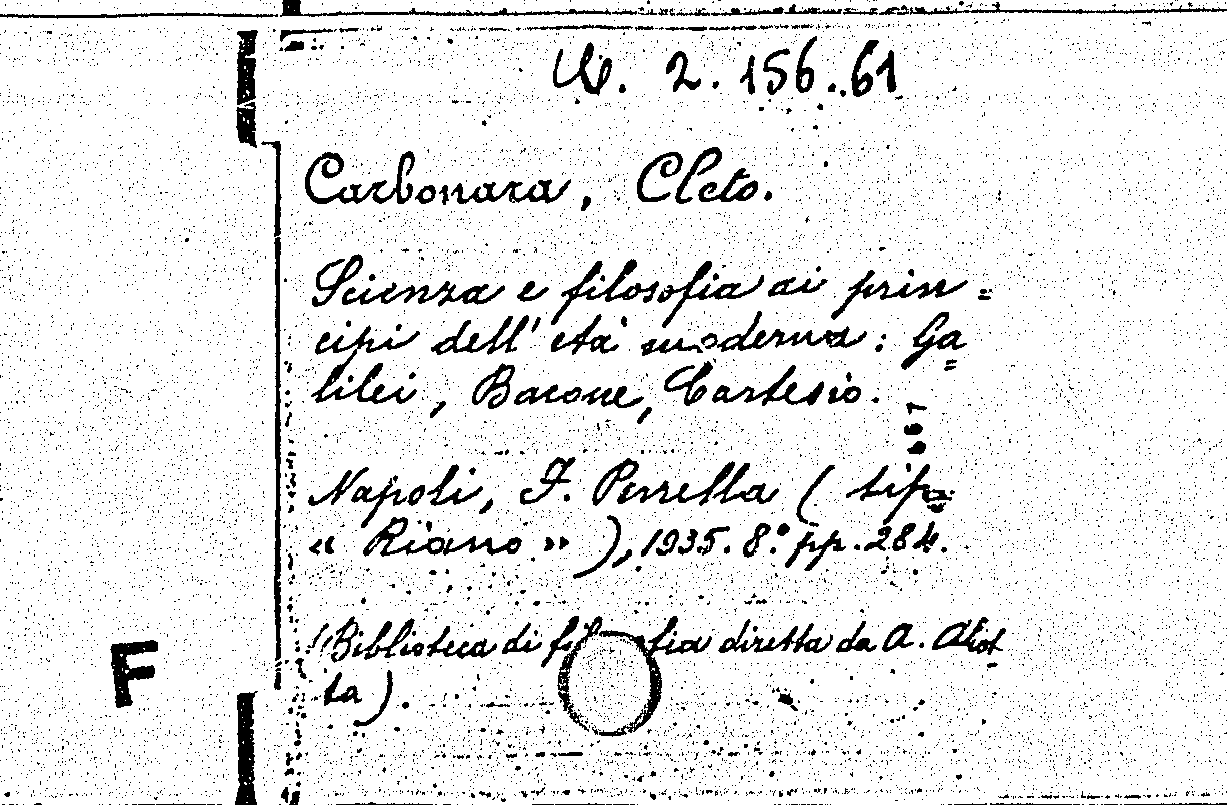 2.156.61
Carbonara, Cleto.
Scienza e filosofia ai prin=
cipi dell'età moderna: Ga=
lilei, Bacone, Cartesio.
Napoli, F. Perrella (tip.
« Riano »), 1935. 8.° pp. 284.
(Biblioteca di fil fia diretta da A. Aliot-
ta).
F